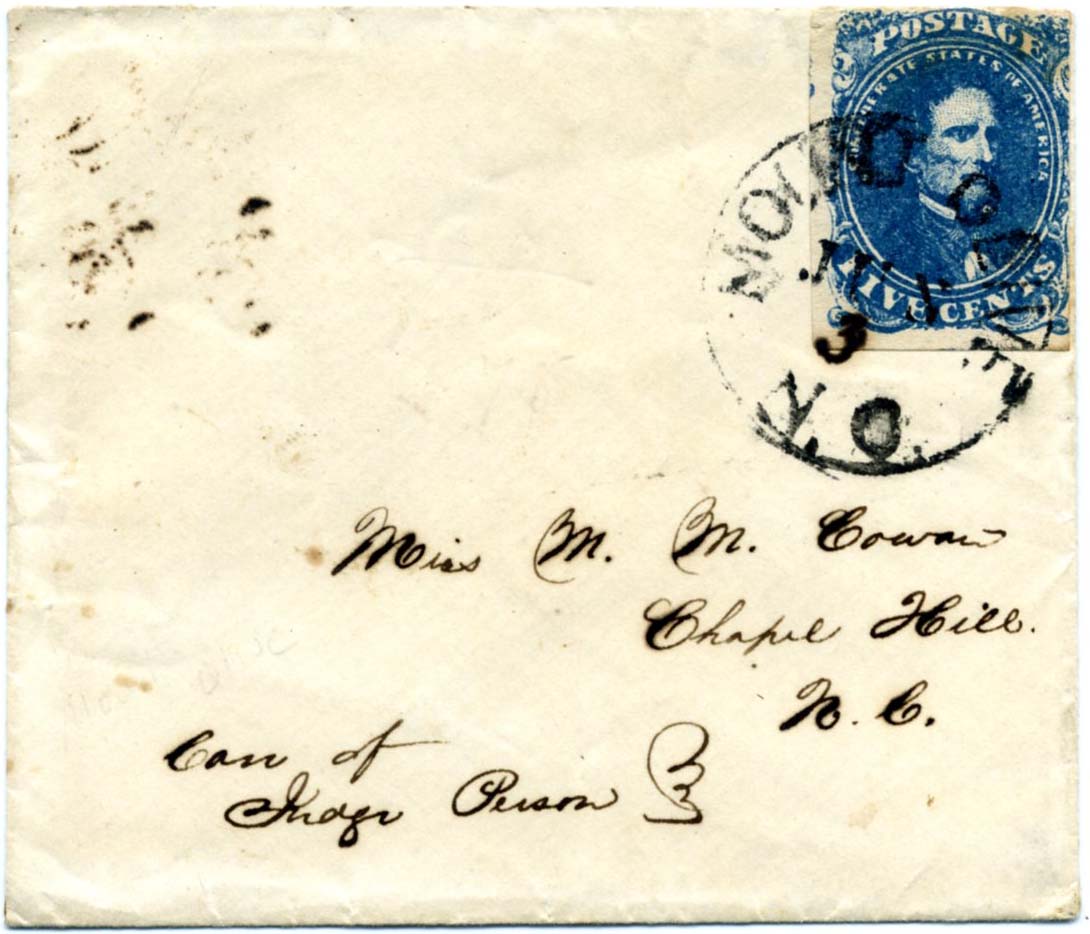 POSTAGE
CONFEDERATE STATES OF AMERICA
FIVE CENTS
MOUNT OLIVE
JUL
3
N.C.
Miss M. M. Cowan
Chapel Hill.
N. C.
Care of
Judge Person